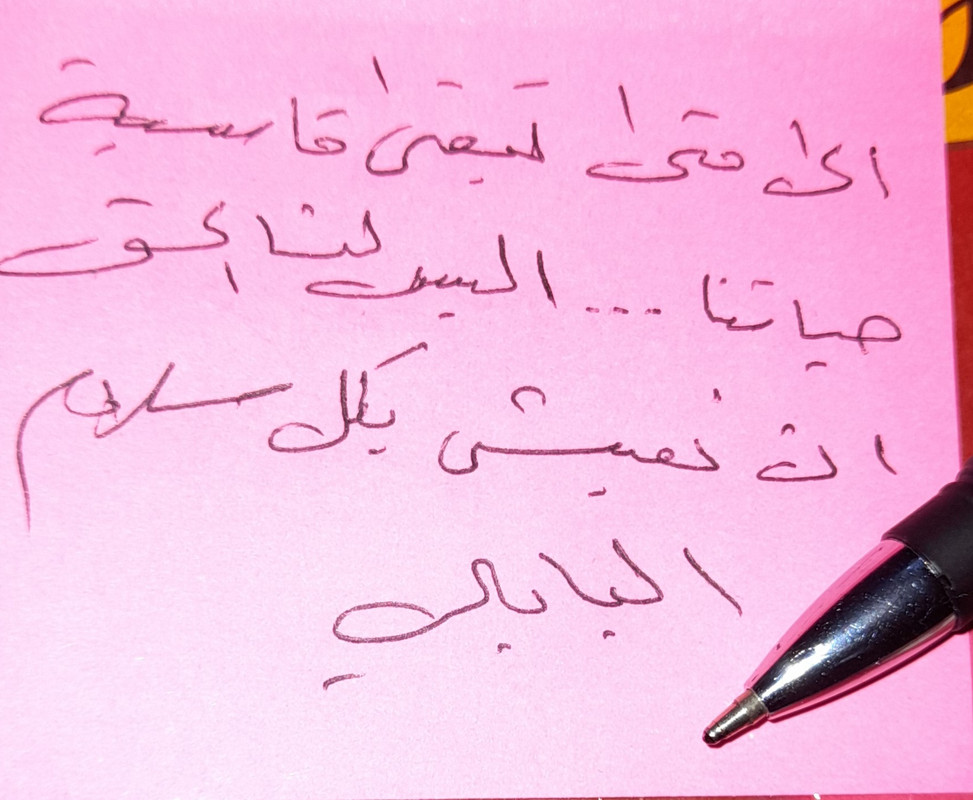 الى متى تبقى قاسية
حياتنا .... اليس لنا الحق
ان نعيش بكل سلام
البابلي